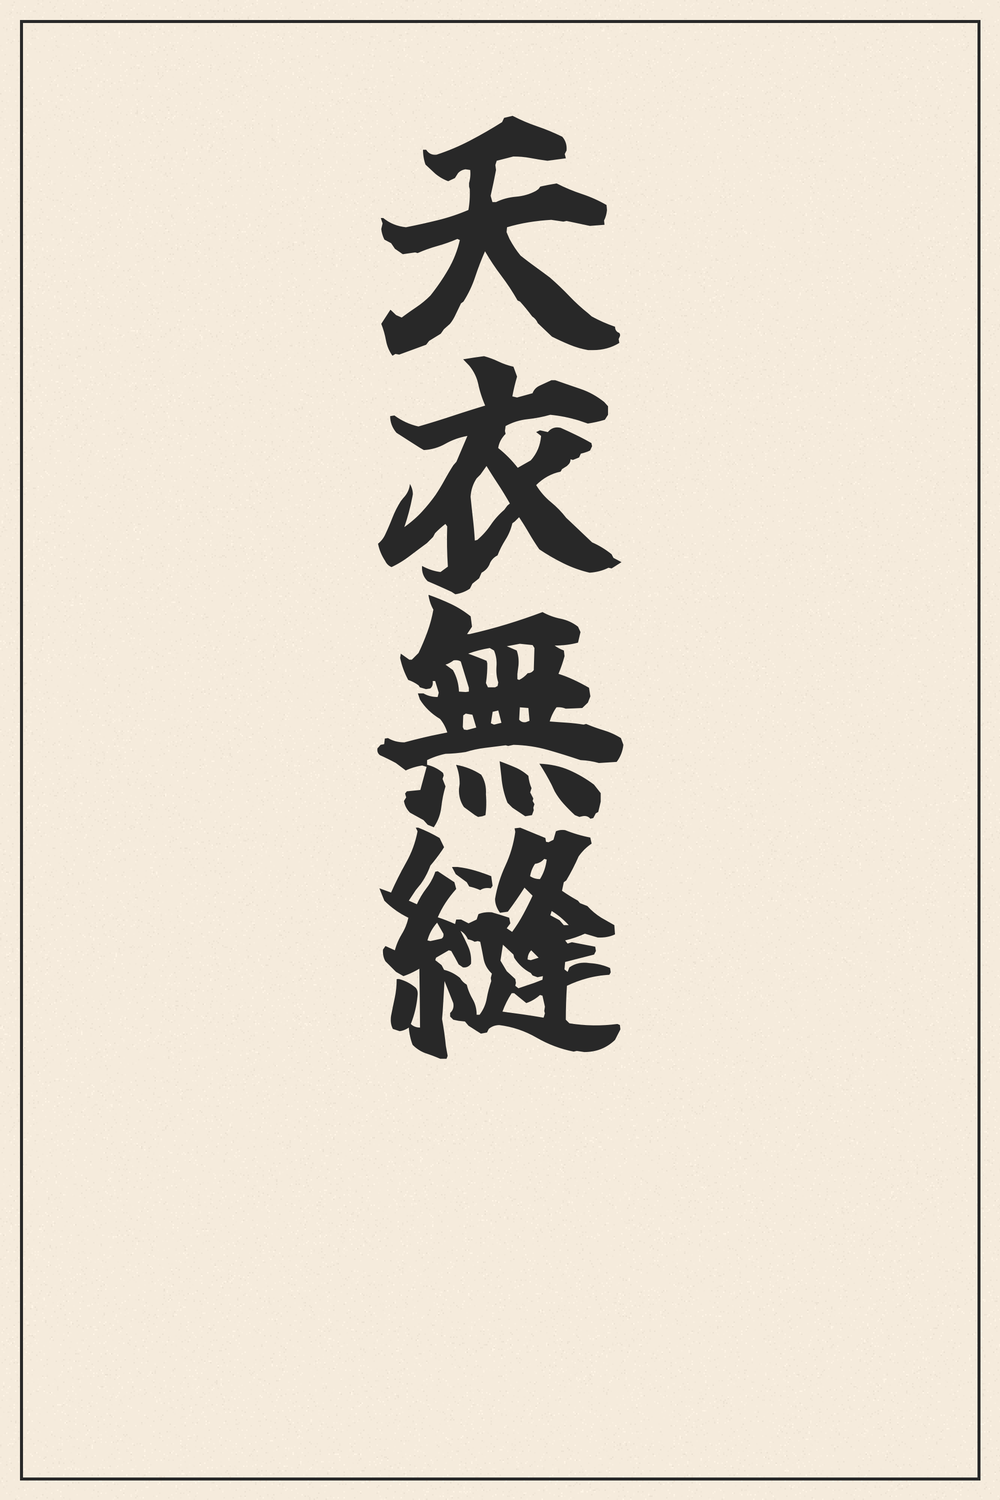 天衣無縫